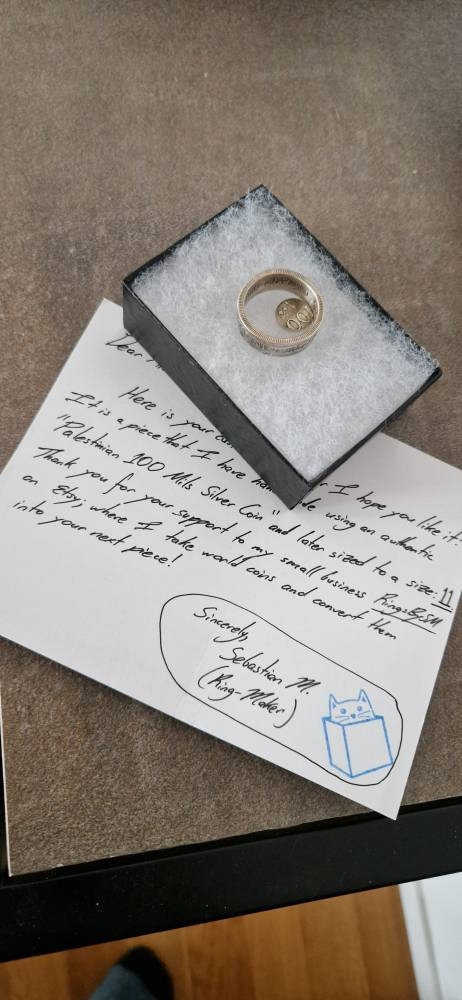 Dear
Here is your I hope you like it!
It is a piece that I have using an authentic
"Palestinian 100 Mils Silver Coin" and later sized to a size: 11
Thank you for your support to my small business RingsBySM
on Etsy, where I take world coins and convert them
into your next piece!
Sincerely,
Sebastian M.
(Ring-Maker)
100